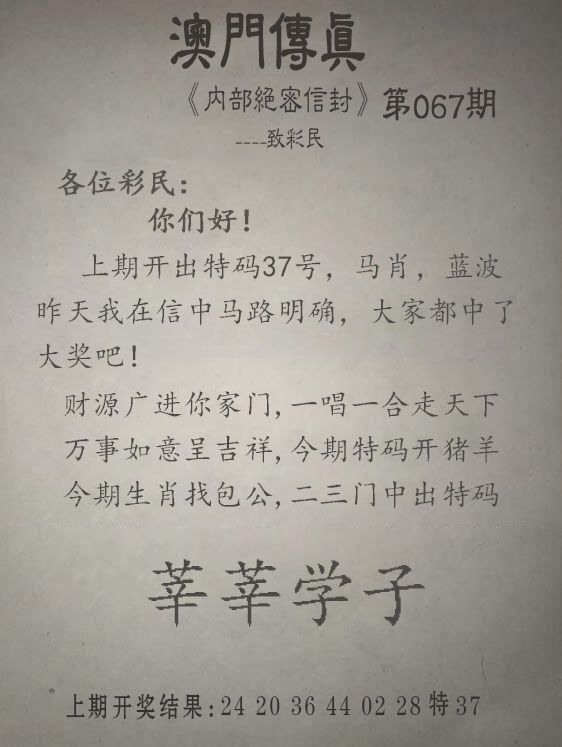 澳門傳眞
《内部絕密信封》第067期
----致彩民
各位彩民：
你们好！
上期开出特码37号，马肖，蓝波
昨天我在信中马路明确，大家都中了
大奖吧！
财源广进你家门,一唱一合走天下
万事如意呈吉祥,今期特码开猪羊
今期生肖找包公,二三门中出特码
莘莘学子
上期开奖结果:24 20 36 44 02 28 特37